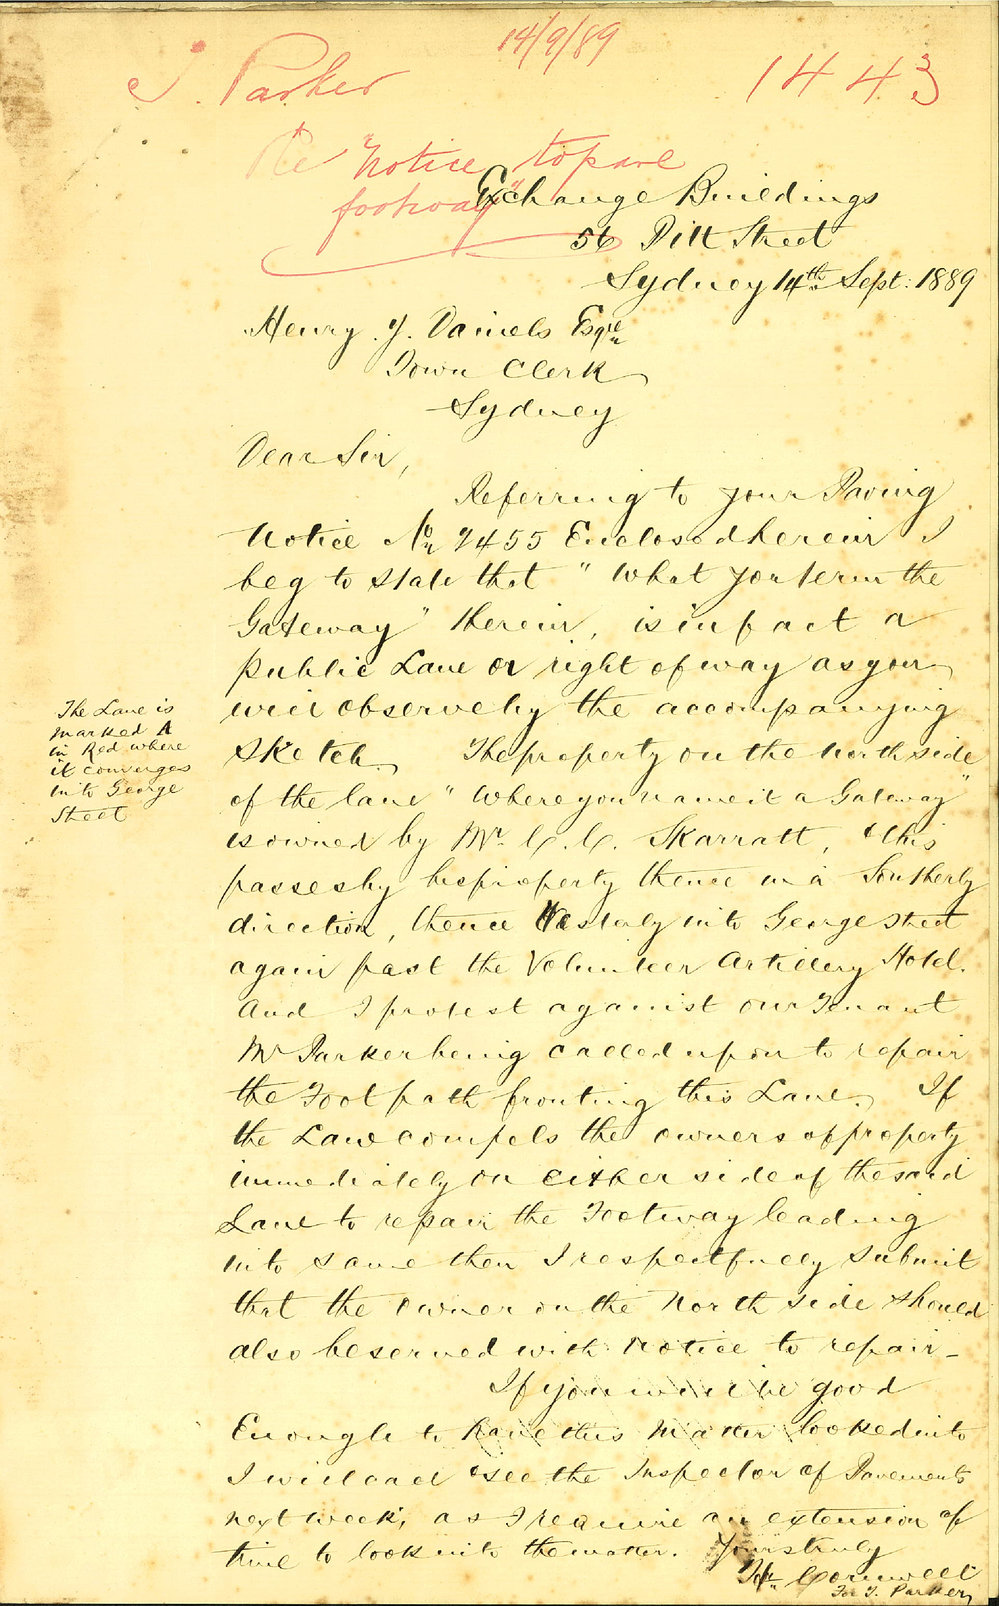 14/9/89
J. Parker
1443
Re "Notice to pave
footway"
Exchange Buildings
56 Pitt Street
Sydney 14th Sept: 1889
Henry J. Daniels Esqre
Town Clerk
Sydney
Dear Sir,
Referring to your Paving
Notice No 7455 Enclosed herein I
beg to state that "What you term the
Gateway" therein, is in fact a
public Lane or right of way as you
will observe by the accompanying
Sketch. The property on the north side
of the lane "Where you name it a Gateway"
is owned by Mr C. C. Skarratt, & this
passes by his property thence in a Southerly
direction, thence Westerly into George Street
again past the Volunteer Artillery Hotel.
And I protest against our Tenant
Mr Parker being called upon to repair
the Footpath fronting this Lane. If
the Law compels the owners of property
immediately on either side of the said
Lane to repair the Footway leading
into same then I respectfully submit
that the owner on the North side should
also be served with Notice to repair -
If you will be good
Enough to have this matter looked into
I will call & see the Inspector of Pavements
next week, as I require an extension of
time to look into the matter. Yours truly
Jn Cornwell
For J. Parker
The Lane is
marked A
in Red where
it converges
into George
Street